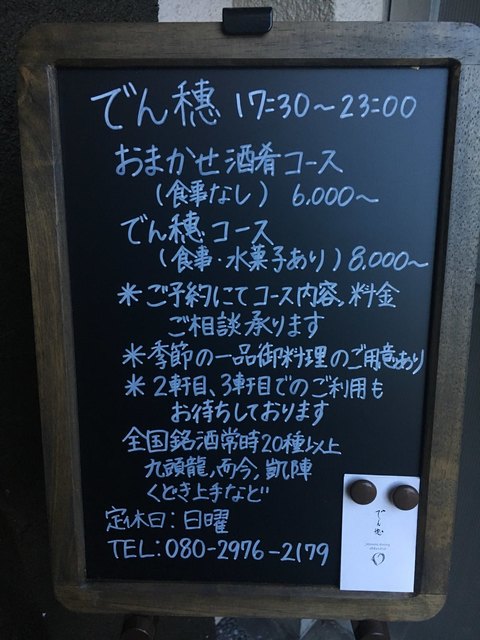 でん穂 17:30〜23:00
おまかせ酒肴コース
(食事なし) 6,000〜
でん穂コース
(食事・水菓子あり) 8,000〜
＊ご予約にてコース内容、料金
ご相談承ります
＊季節の一品御料理のご用意あり
＊2軒目、3軒目でのご利用も
お待ちしております
全国銘酒常時20種以上
九頭龍，而今，凱陣
くどき上手など
定休日：日曜
TEL：080-2976-2179
でん穂